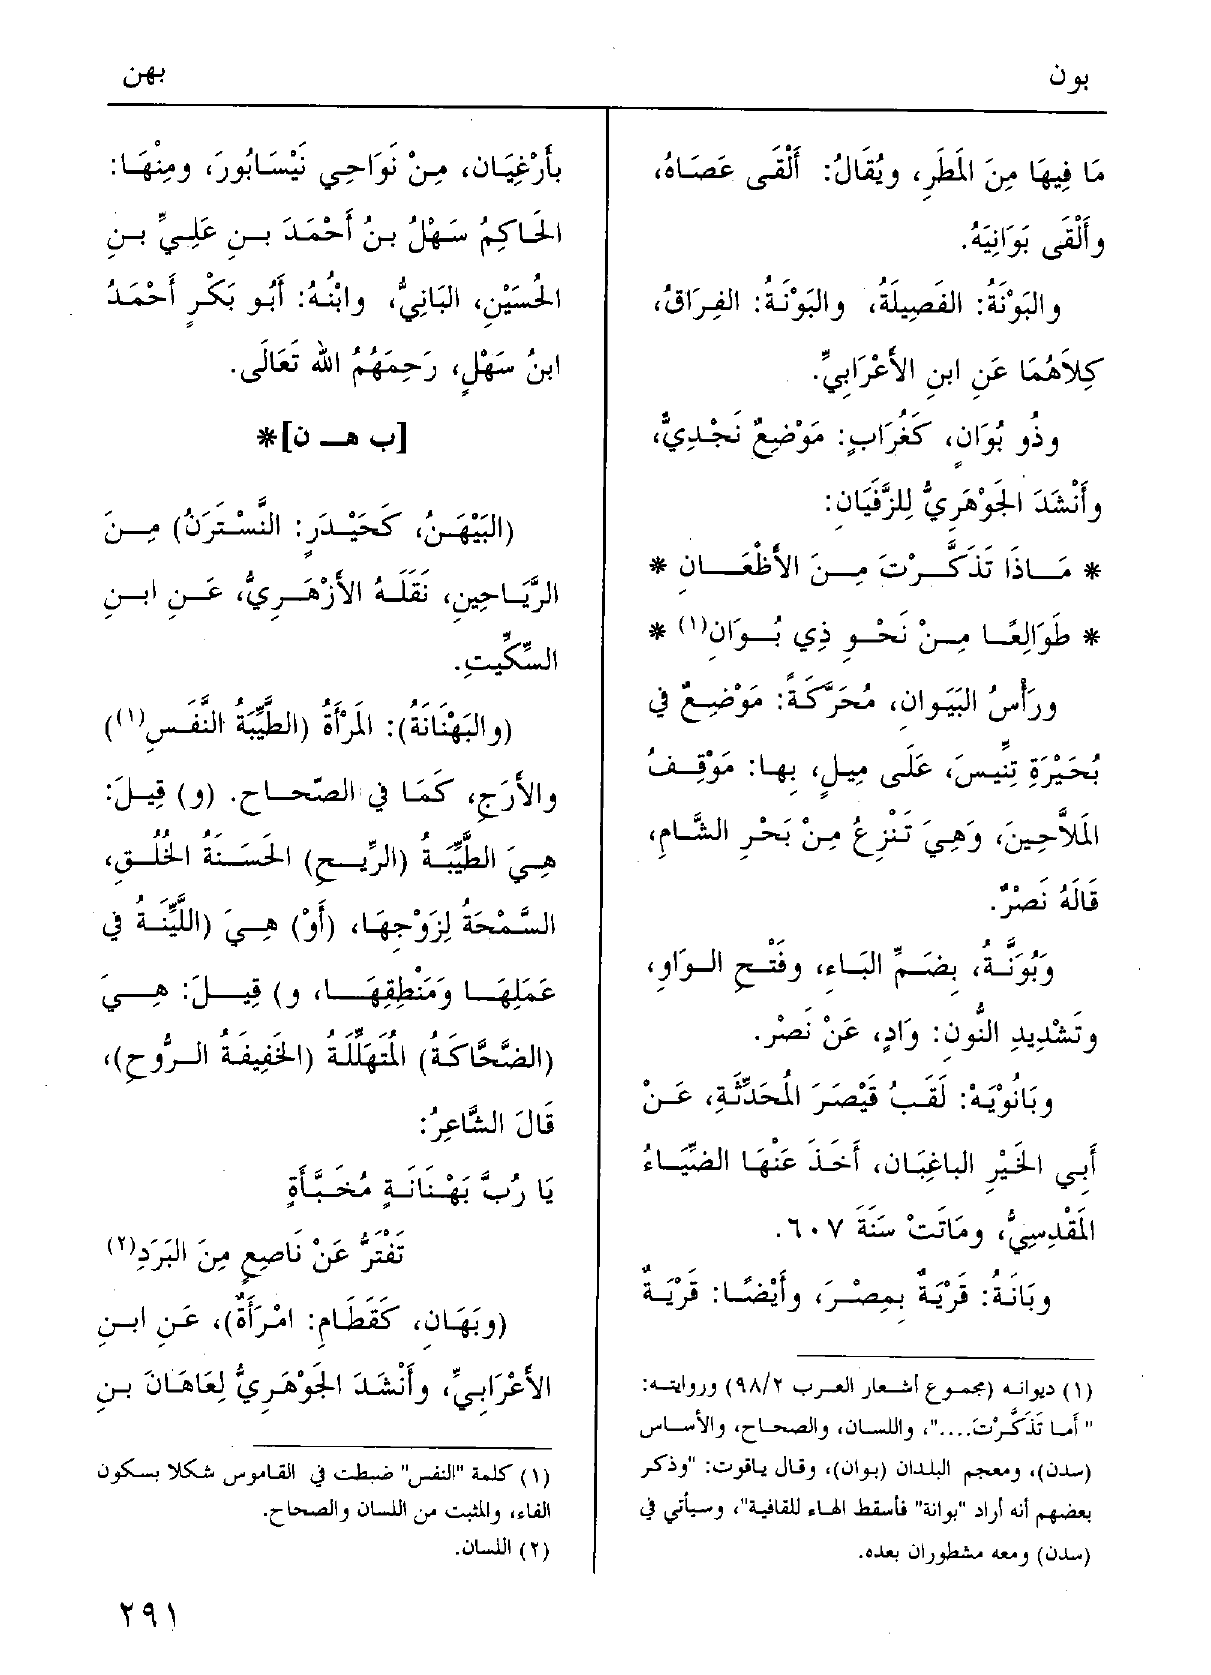 بون
بهن
مَا فِيهَا مِنَ المَطَرِ، ويُقَالُ: أَلْقَى عَصَاهُ،
وأَلْقَى بَوَانِيَهُ.
والبَوْنَةُ: الفَصِيلَةُ، والبَوْنَةُ: الفِرَاقُ،
كِلاَهُمَا عَنِ ابنِ الأَعْرَابِيِّ.
وذُو بُوَانٍ، كَغُرَابٍ: مَوْضِعٌ نَجْدِيٌّ،
وأَنْشَدَ الجَوْهَرِيُّ لِلزَّفَيَانِ:
* مَاذَا تَذَكَّرْتَ مِنَ الأَظْعَانِ *
* طَوَالِعًا مِنْ نَحْوِ ذِي بُوَانِ(١) *
ورَأْسُ البَيَوانِ، مُحَرَّكَةً: مَوْضِعٌ فِي
بُحَيْرَةِ تِنِّيسَ، عَلَى مِيلٍ، بِها: مَوْقِفُ
المَلاَّحِينَ، وَهِيَ تَنْزِعُ مِنْ بَحْرِ الشَّامِ،
قَالَهُ نَصْرٌ.
وَبُوَنَّةُ، بِضَمِّ البَاءِ، وفَتْحِ الوَاوِ،
وتَشْدِيدِ النُّونِ: وَادٍ، عَنْ نَصْرٍ.
وبَانُوْيَهْ: لَقَبُ قَيْصَرَ المُحَدِّثَةِ، عَنْ
أَبِي الخَيْرِ الباغِبَان، أَخَذَ عَنْهَا الضِّيَاءُ
المَقْدِسِيُّ، ومَاتَتْ سَنَةَ ٦٠٧.
وبَانَةُ: قَرْيَةٌ بِمِصْرَ، وأَيْضًا: قَرْيَةٌ
(١) ديوانه (مجموع أشعار العرب ٩٨/٢) وروايته:
"أما تَذَكَّرْتَ...."، واللسان، والصحاح، والأساس
(سدن)، ومعجم البلدان (بوان)، وقال ياقوت: "وذكر
بعضهم أنه أراد "بوانة" فأسقط الهاء للقافية"، وسيأتي في
(سدن) ومعه مشطوران بعده.
بأَرْغِيَان، مِنْ نَوَاحِي نَيْسَابُورَ، ومِنْهَا:
الحَاكِمُ سَهْلُ بنُ أَحْمَدَ بنِ عَلِيِّ بنِ
الحُسَيْنِ، البَانِيُّ، وابْنُهُ: أَبُو بَكْرٍ أَحْمَدُ
ابنُ سَهْلٍ، رَحِمَهُمُ الله تَعَالَى.
[ب هـ ن]*
(البَيْهَنُ، كَحَيْدَرٍ: النَّسْتَرَنُ) مِنَ
الرَّيَاحِينِ، نَقَلَهُ الأَزْهَرِيُّ، عَنِ ابنِ
السِّكِّيتِ.
(والبَهْنَانَةُ): المَرْأَةُ (الطَّيِّبَةُ النَّفَسِ(١))
والأَرَجِ، كَمَا فِي الصّحَاحِ. (و) قِيلَ:
هِيَ الطَّيِّبَةُ (الرِّيحِ) الحَسَنَةُ الخُلُقِ،
السَّمْحَةُ لِزَوْجِهَا، (أَوْ) هِيَ (اللَّيِّنَةُ فِي
عَمَلِهَا ومَنْطِقِهَا، و) قِيلَ: هِيَ
(الضَّحَّاكَةُ) المُتَهَلِّلَةُ (الخَفِيفَةُ الرُّوحِ)،
قَالَ الشَّاعِرُ:
يَا رُبَّ بَهْنَانَةٍ مُخَبَّأَةٍ
تَفْتَرُّ عَنْ نَاصِعٍ مِنَ البَرَدِ(٢)
(وبَهَانِ، كَقَطَامِ: امْرَأَةٌ)، عَنِ ابنِ
الأَعْرَابِيِّ، وأَنْشَدَ الجَوْهَرِيُّ لِعَاهَانَ بنِ
(١) كلمة "النفس" ضبطت في القاموس شكلا بسكون
الفاء، والمثبت من اللسان والصحاح.
(٢) اللسان.
٢٩١